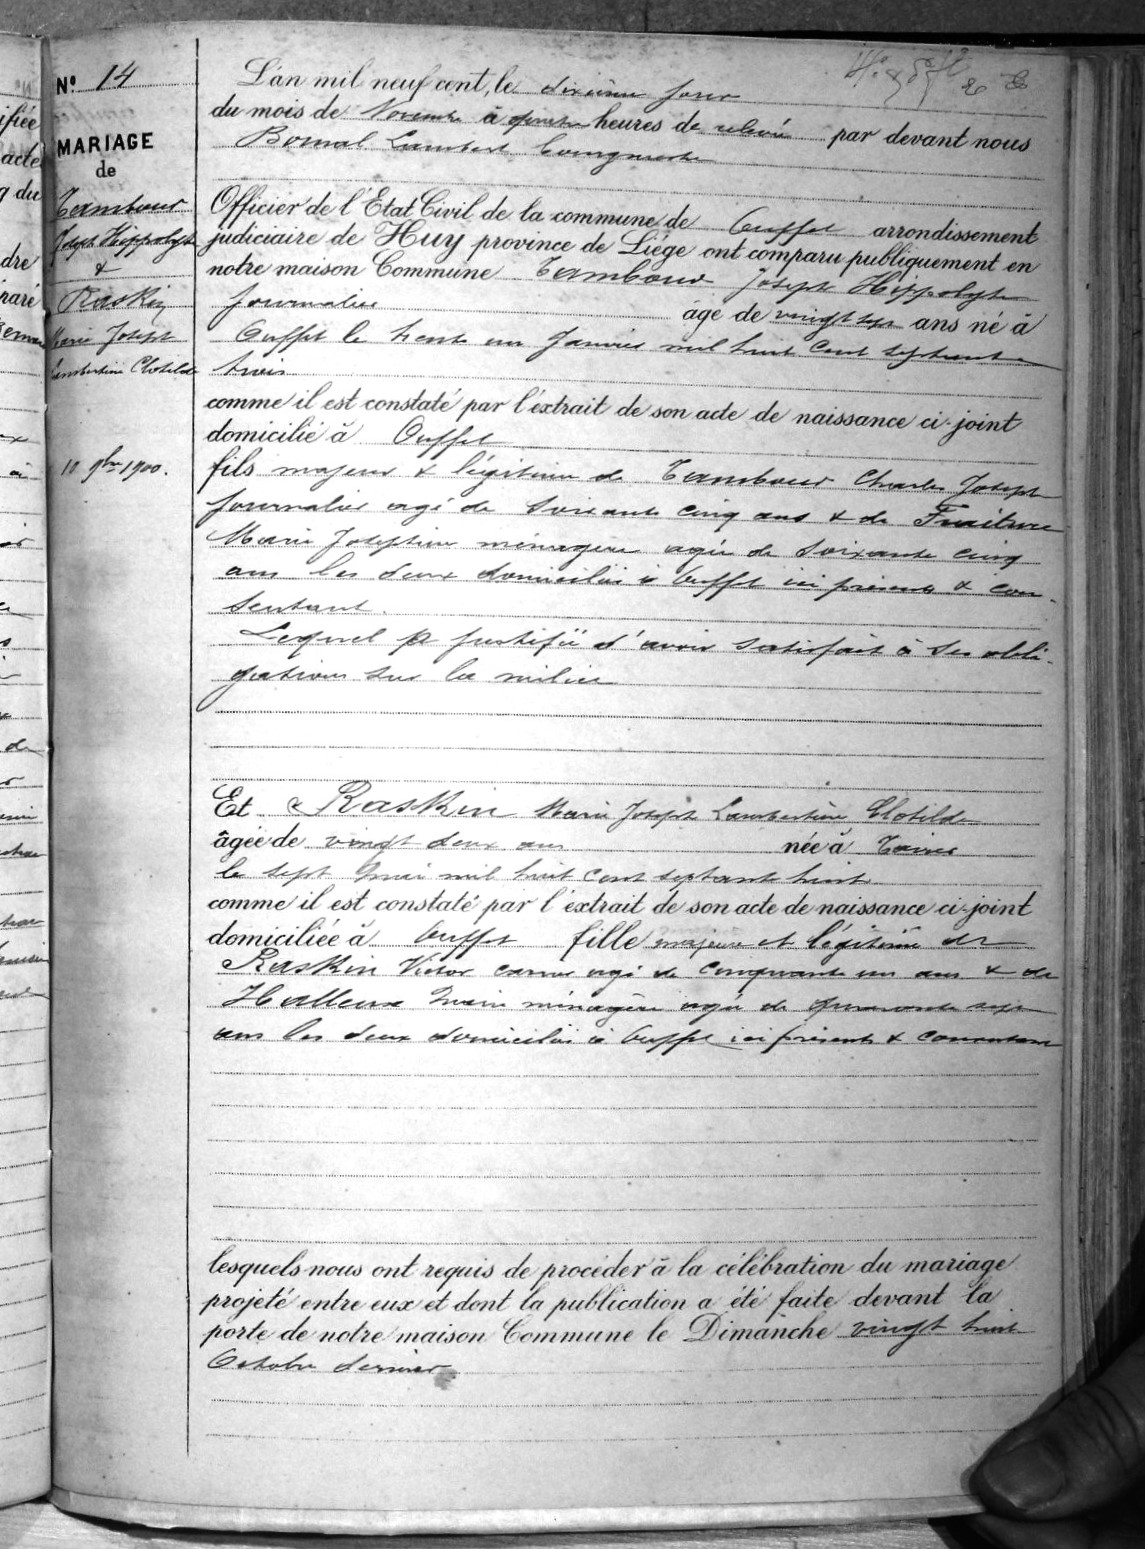 Nº 14
MARIAGE
de
Tambour
Joseph Hippolyte
&
Raskin
Marie Joseph
Lambertine Clotilde
10 9bre 1900.
L'an mil neuf cent, le dixième jour
du mois de Novembre à quatre heures de relevée par devant nous
Bomal Lambert Bourgmestre
Officier de l'État Civil de la commune de Ouffet arrondissement
judiciaire de Huy province de Liége ont comparu publiquement en
notre maison Commune Tambour Joseph Hippolyte
journalier âgé de vingt sept ans né à
Ouffet le trente un Janvier mil huit cent septante
trois
comme il est constaté par l'extrait de son acte de naissance ci-joint
domicilié à Ouffet
fils majeur & légitime de Tambour Charles Joseph
journalier agé de soixante cinq ans & de Fraiture
Marie Josephine ménagère agée de soixante cinq
ans les deux domiciliés à Ouffet ici présents & con-
sentant.
Lequel a justifié d'avoir satisfait à ses obli-
gations sur la milice
Et Raskin Marie Joseph Lambertine Clotilde
âgée de vingt deux ans née à
le sept Mai mil huit cent septante huit
comme il est constaté par l'extrait de son acte de naissance ci-joint
domiciliée à Ouffet fille majeure et légitime de
Raskin Victor agé de cinquante un ans & de
Halleux Marie ménagère agée de quarante sept
ans les deux domiciliés à Ouffet ici présents & consentant
lesquels nous ont requis de procéder à la célébration du mariage
projeté entre eux et dont la publication a été faite devant la
porte de notre maison Commune le Dimanche vingt huit
Octobre dernier